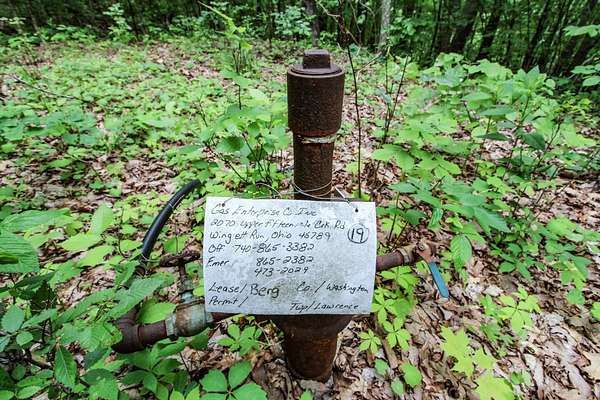 Gas Enterprise Co Inc
2070 Upper Fifteen Mile Crk. Rd
Wingett Run, Ohio 45789
19
Off 740-865-3382
Emer 865-2382
473-2029
Lease/ Berg Co./ Washington
Permit/ Twp/ Lawrence